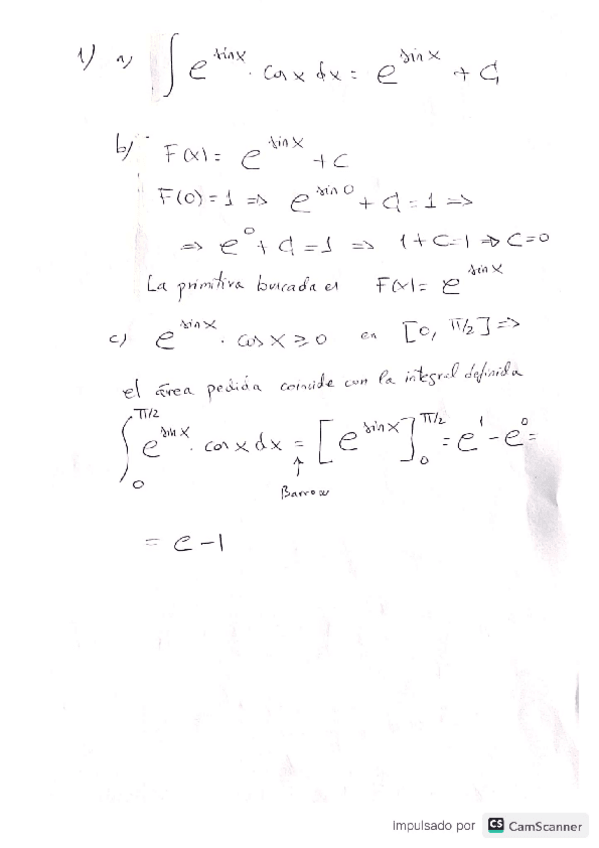 1) a) ∫ e^{sin x} · cos x dx = e^{sin x} + C
b) F(x) = e^{sin x} + C
F(0) = 1 => e^{sin 0} + C = 1 =>
=> e^0 + C = 1 => 1 + C = 1 => C = 0
La primitiva buscada es F(x) = e^{sin x}
c) e^{sin x} · cos x ≥ 0 en [0, π/2] =>
el área pedida coincide con la integral definida
∫_0^{π/2} e^{sin x} · cos x dx = [e^{sin x}]_0^{π/2} = e^1 - e^0 =
↑
Barrow
= e - 1
Impulsado por CS CamScanner